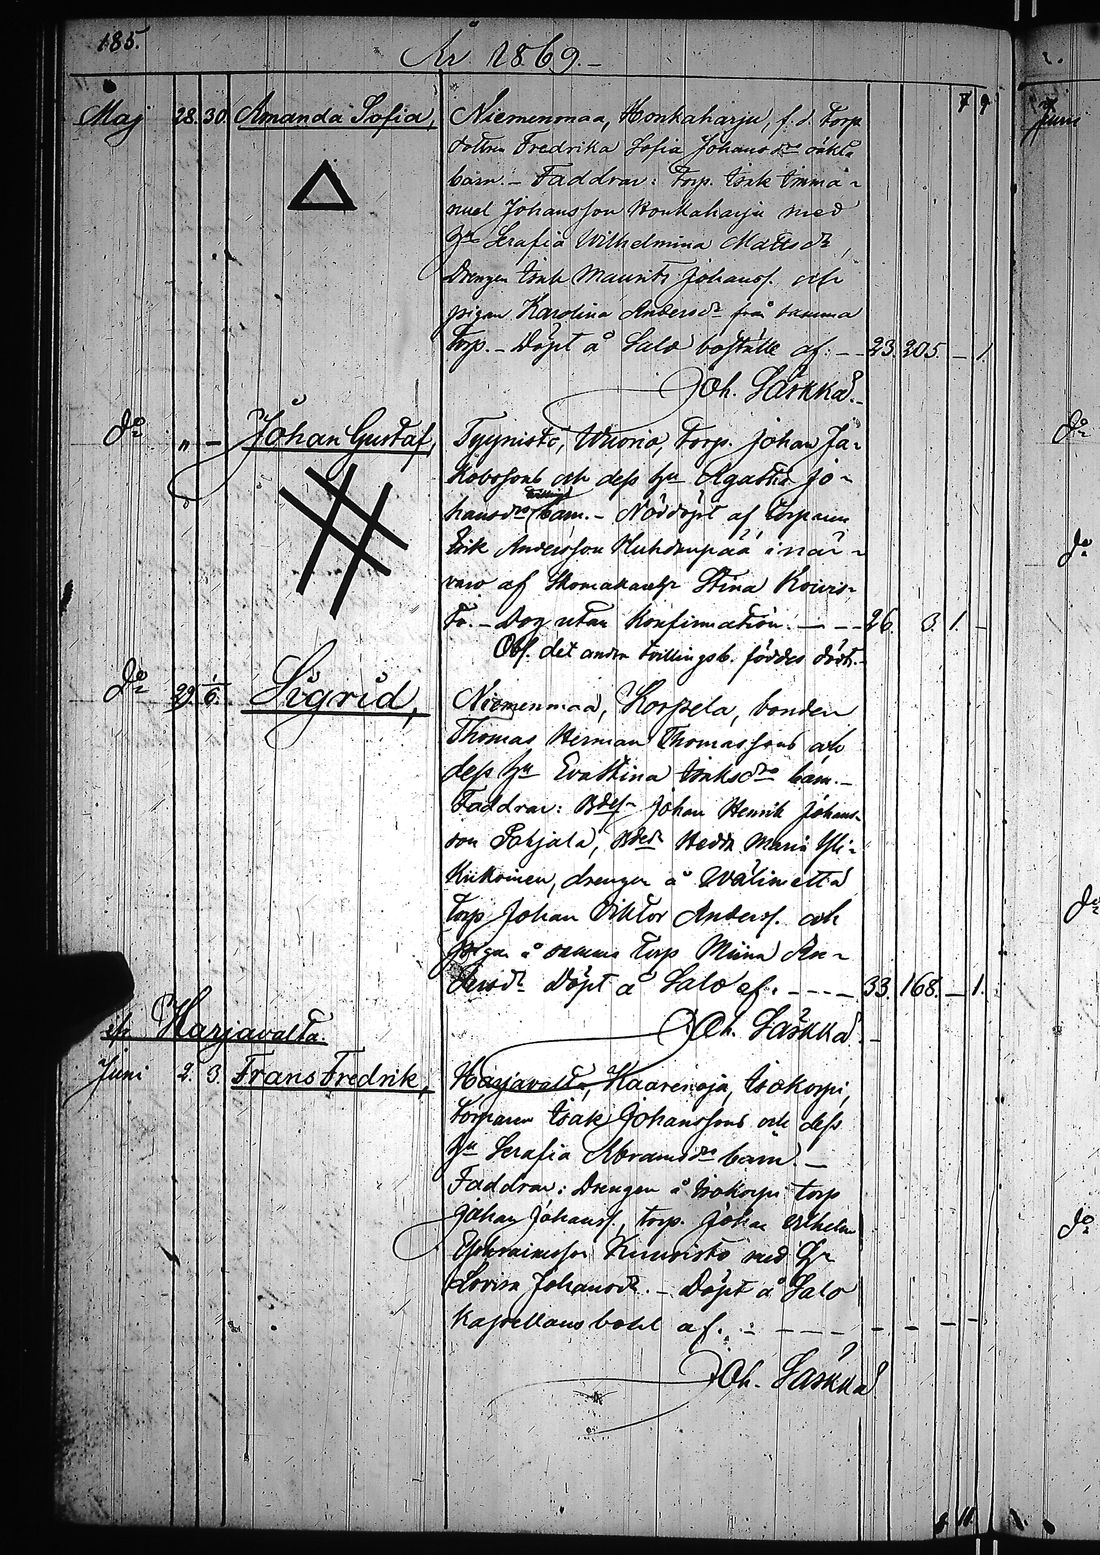 185.
År 1869.
7 9
Maj 28. 30. Amanda Sofia, Niemenmaa, Honkaharju, f. d. torp.
dottren Fredrika Sofia Johansdrs oäkta
barn. – Faddrar: Torp. Isak Imma-
nuel Johansson Honkaharju med
hu Serafia Wilhelmina Mattsdr,
Drengen Isak Maurits Johanss. och
pigan Karolina Andersdr från samma
torp. – Döpt å Salo boställe af: – 23. 205. – 1.
Joh. Laskka.
do „ – Johan Gustaf, Tyynisto, Wuorio, Torp. Johan Ja-
kobssons och dess hu Agatha Jo-
hansdrs tvillings barn. – Nöddöpt af torparen
Isak Andersson Huhdanpää i när-
varo af Skomakareh. Stina Koivis-
to. – Dog utan konfirmation. – – – 26. 3. 1. –
Obs. det andra tvillingsb. föddes dödt. –
do 29. 1/6. Sigrid, Niemenmaa, Korpela, bonden
Thomas Herman Thomassons och
dess hu Eva Stina Isaksdrs barn. –
Faddrar: Bdes. Johan Henrik Johans-
son Pohjala, Bdedr Hedda Maria Yli-
Kiikoinen, drengen å Wälimettä
torp Johan Viktor Anderss. och
pigan å samma torp Miina An-
dersdr Döpt å Salo af. – – – – 33. 168. – 1.
Joh. Laskka.
fr. Harjavalta.
Juni 2. 3. Frans Fredrik, Harjavalta, Haarenoja, Isokorpi,
torparen Isak Johanssons och dess
hu Serafia Abramsdrs barn. –
Faddrar: Drengen å Isokorpi torp
Johan Johanss., torp. Johan Wilhelm
Ephraimsson Kuuristo med hu
Lovisa Johansdr. – Döpt å Salo
kapellans bohl af. – – – – – – – –
Joh. Laskka
Juni
do
do
do
do